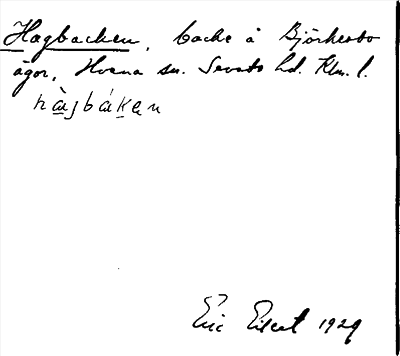 Hagbacken, backe å Björkesbo
ägor, Hvena sn. Sevede hd. Klm. l.
hàgbáken
Eric Elfert 1929